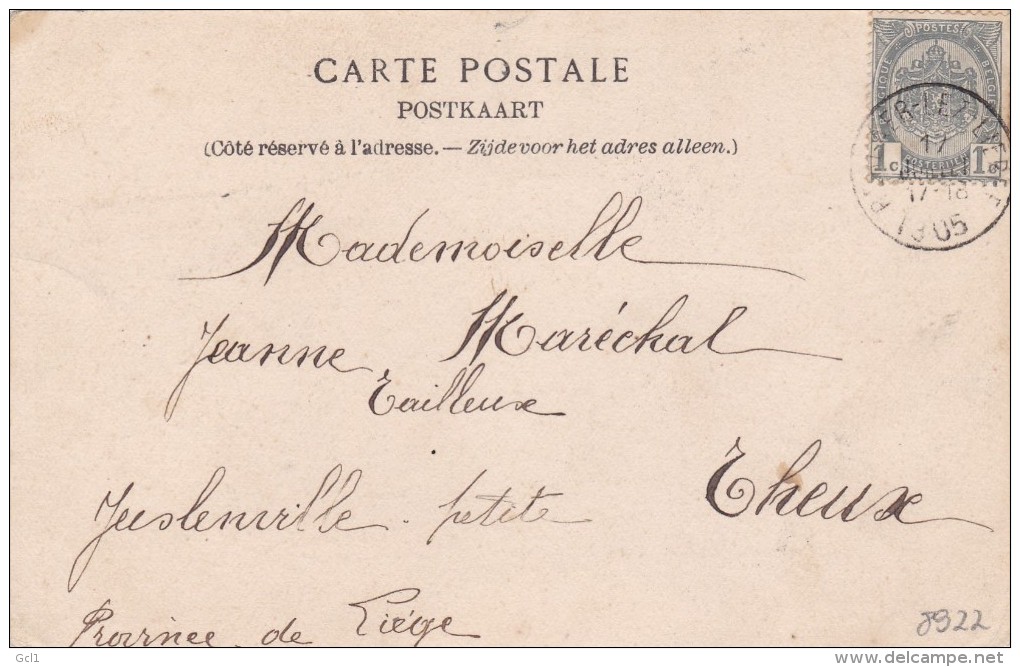 CARTE POSTALE
POSTKAART
(Côté réservé à l'adresse. — Zijde voor het adres alleen.)
POSTES
BELGIQUE
BELGIË
1c 1c
17
17-18
1905
Mademoiselle
Jeanne Maréchal
Tailleuse
Theux
Juslenville - petite
Province de Liége
8922
Gcl1
delcampe.net